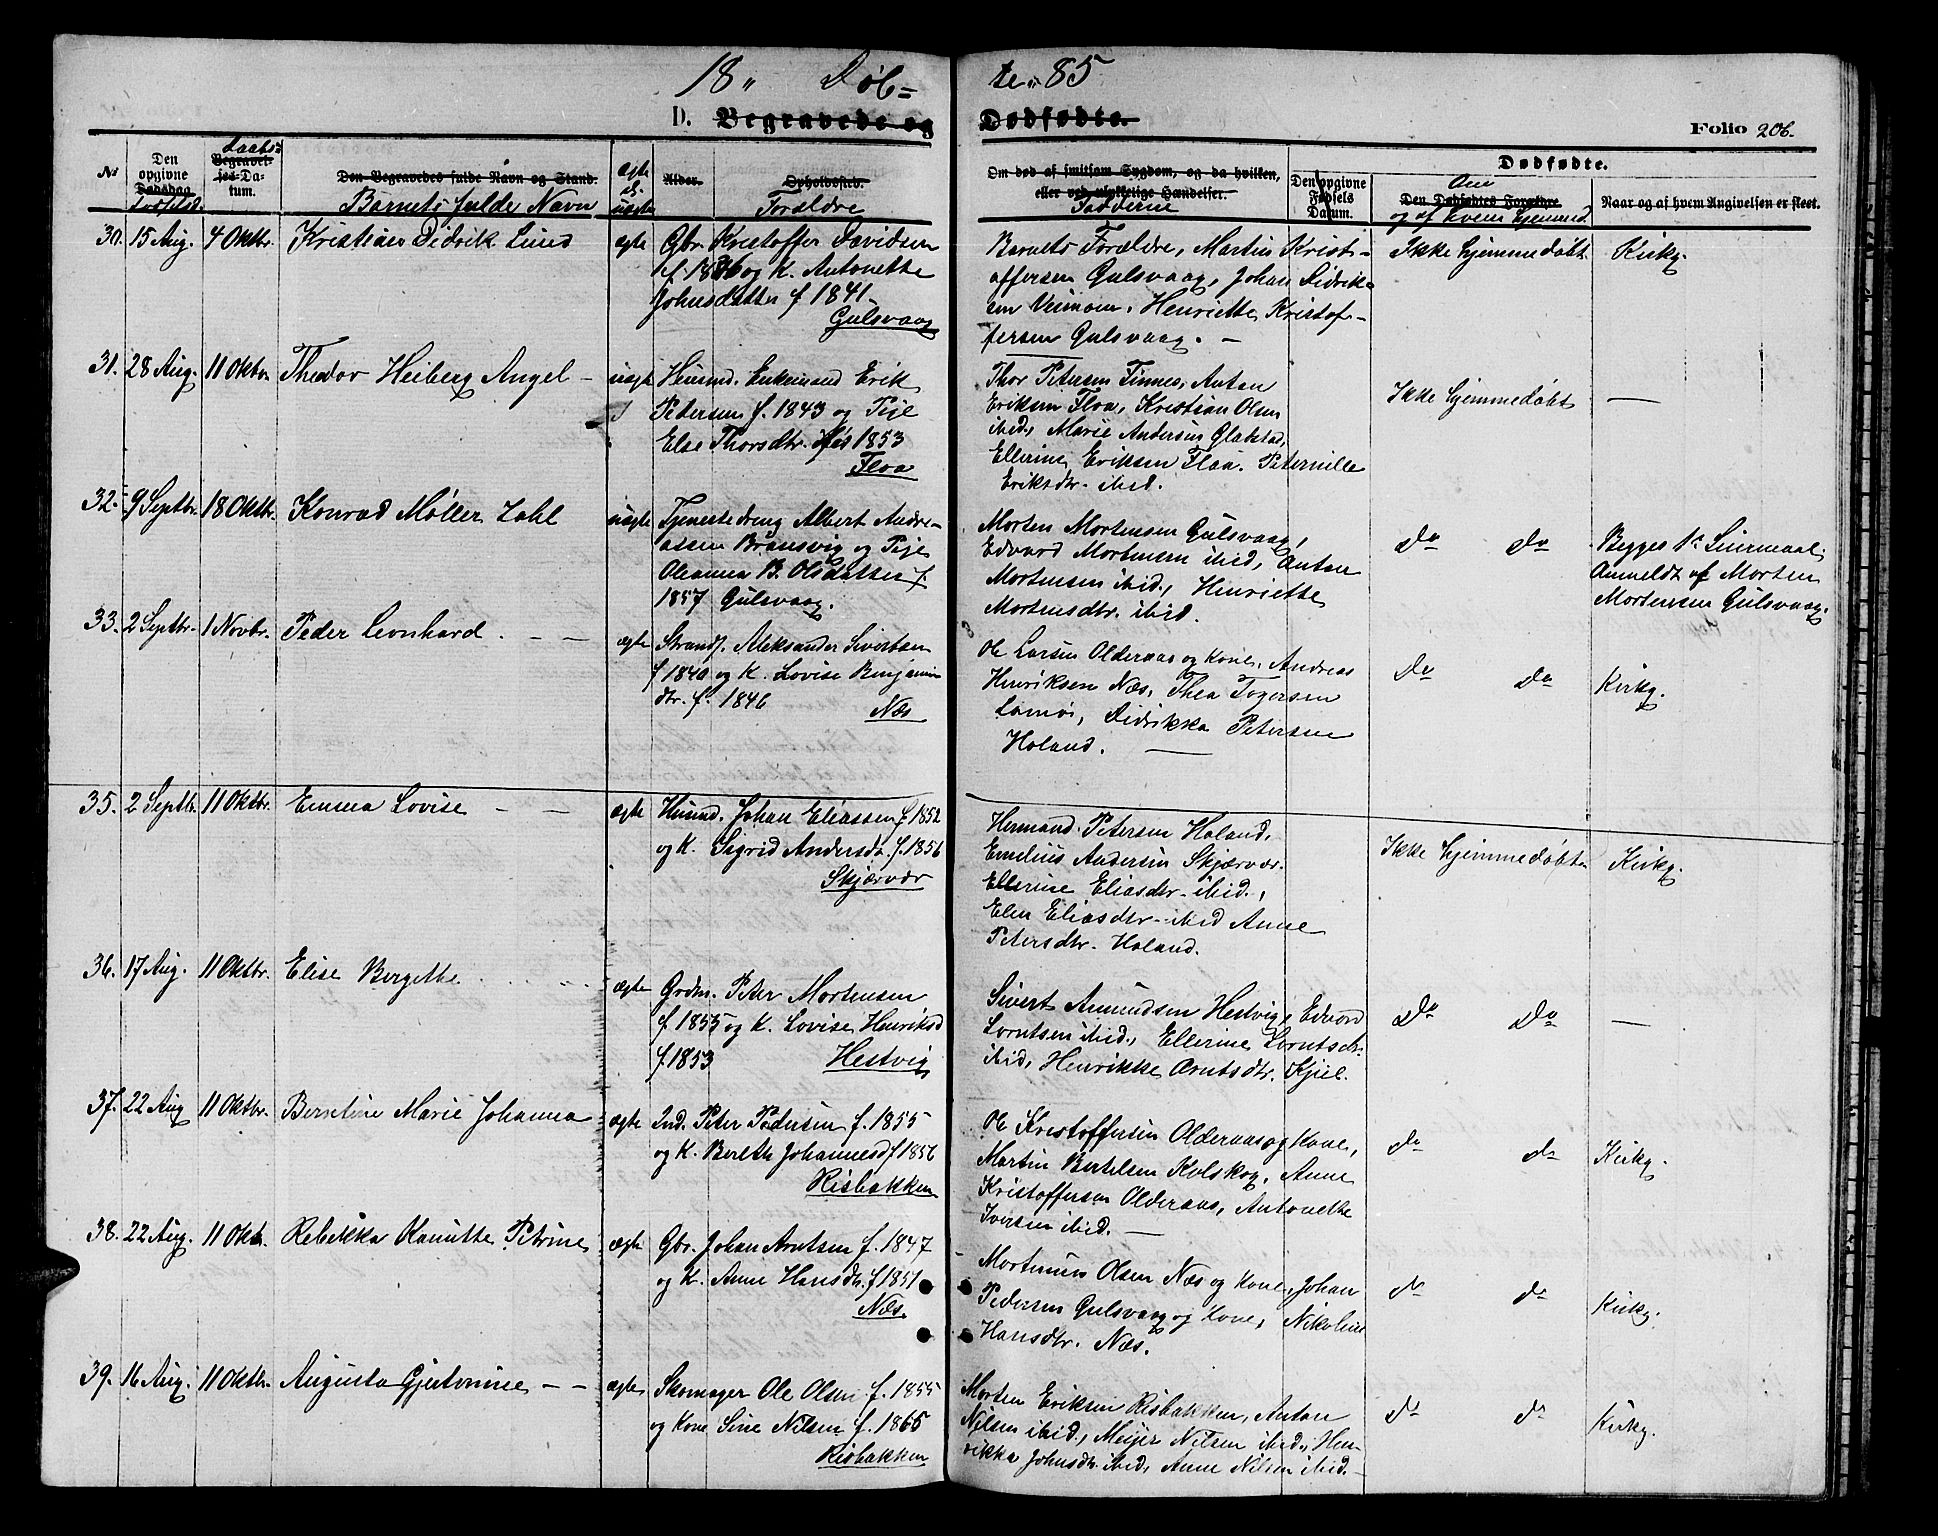 18 " Døb=
te " 85
D. Begravede og
Dødfødte.
Folio 206.
No
Den opgivne Dødsdag
Fødselsd.
Daabs=
Begravelses-Datum.
Den Begravedes fulde Navn og Stand.
Barnets fulde Navn
Ægte el. uægte
Alder.
Opholdssted.
Forældre
Om død af smitsom Sygdom, og da hvilken,
eller ved ulykkelige Hændelser.
Fadderne
Den opgivne Fødsels Datum.
Dødfødte.
Om
Den Dødfødtes Forældre.
og af hvem hjemmed
Naar og af hvem Angivelsen er skeet.
30. 15 Aug. 4 Oktbr. Kristian Didrik Lund
ægte Gbr. Kristoffer Davidsen
f. 1836 og K. Antonette
Johnsdatter f 1841
Gulsvaag
Barnets Forældre, Martin Kristi-
offersen Gulsvaag, Johan Didrik-
sen , Henriette Kristof-
fersen Gulsvaag. —
Ikke hjemmedøbt Kirkg.
31. 28 Aug. 11 Oktbr Theodor Heiberg Angel —
uægte Huusmd. Enkemand Erik
Pedersen f. 1843 og Pige
Else Thorsdtr. født 1853
Floa
Thor Petersen Finnes, Anton
Eriksen Floa, Kristian Olsen
ibid., Marie Andersen Gladstad,
Ellerine Eriksen Floa. Peternille
Eriksdtr. ibid.
Ikke hjemmedøbt —
32. 9 Septbr. 18 Oktbr. Konrad Møller Dahl
uægte Tjenestedreng Albert Andre-
assen Brønsvig og Pige
Oleanna B. Olsdatter f.
1857 Gulsvaag.
Morten Mortensen Gulsvaag,
Edvard Mortensen ibid, Anton
Mortensen ibid, Henriette
Mortensdtr. ibid.
do do
Begges 1ste Leiermaal;
Anmeldt af Morten
Mortensen Gulsvaag.
33. 2 Septbr. 1 Novbr. Peder Leonhard . — —
ægte Strands. Aleksander Sivertsen
f 1840 og K. Lovise Benjamin
dtr. f. 1846 Næs
Ole Larsen Olderaas og Kone, Andreas
Henriksen Næs, Thea Togersen
Lamøi, Didrikka Petersen
Holand. —
do do Kirkg.
35. 2 Septbr. 11 Oktbr. Emma Lovise — —
ægte Huusmd. Johan Eliassen f. 1852
og K. Sigrid Andersdtr. f. 1856
Skjærvær
Hermand Petersen Holand,
Emelius Andersen Skjærvær.
Ellerine Eliasdtr. ibid.,
Elen Eliasdtr. ibid Anne
Petersdtr. Holand.
Ikke hjemmedøbt Kirkg.
36. 17 Aug. 11 Oktbr. Elise Bergethe
ægte Grdm. Peter Mortensen
f. 1855 og K. Lovise Henriksd
f. 1853 Hestvig
Sivert Amundsen Hestvig, Edvard
Lorntsen ibid., Ellerine Lorntsdtr.
ibid, Henrikke Arntsdtr. Kjul.
do do —
37. 22 Aug 11 Oktbr. Berntine Marie Johanna
ægte Ind. Peter Pedersen f. 1855
og K. Berith Johannesd f 1856
Risbakken
Ole Kristoffersen Olderaas og Kone,
Martin Bertelsen Kolskog, Anne
Kristoffersen Olderaas, Antonette
Iversen ibid. —
do do Kirkg.
38. 22 Aug. 11 Oktbr. Rebekka Kanutte Petrine
ægte Gbr. Johan Arntsen f. 1847
og K. Anne Hansdtr. f 1851
Næs.
Mortinus Olsen Næs og Kone, Johan
Pedersen Gulsvaag og Kone, Nikoline
Hansdtr. Næs.
do do Kirkg.
39. 16 Aug. 11 Oktbr. Augusta Gjertvine — —
ægte Skomager Ole Olsen f. 1855
og Kone Sine Nilsen f. 1865
Risbakken
Morten Eriksen Risbakken, Anton
Nilsen ibid., Meyer Nilsen ibid., Hen-
rikka Johnsdtr. ibid, Anne Nilsen ibid. —
do do Kirkg.